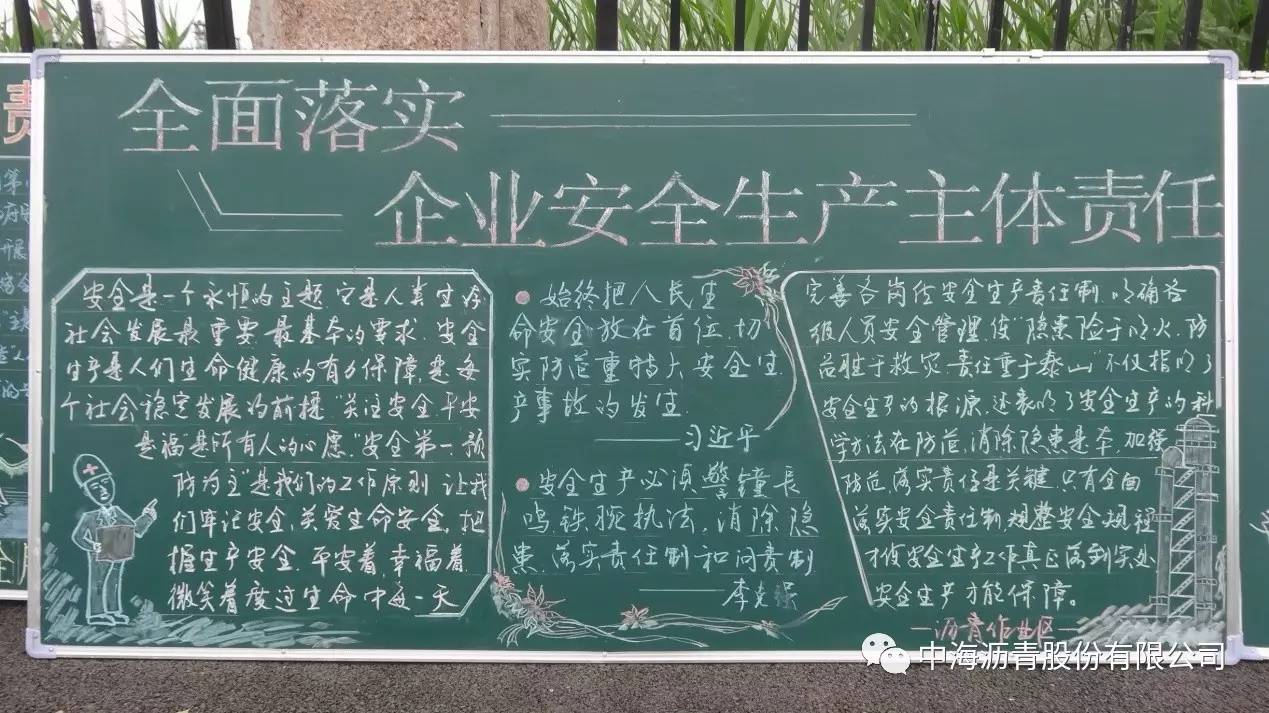 全面落实
企业安全生产主体责任
安全是一个永恒的主题,它是人类生存
社会发展最重要、最基本的要求,安全
生产是人们生命健康的有力保障,是每
个社会稳定发展的前提“关注安全平安
是福”是所有人的心愿.“安全第一,预
防为主”是我们的工作原则,让我
们牢记安全,关爱生命安全,把
握生产安全,平安着,幸福着
微笑着度过生命中每一天
始终把人民生
命安全放在首位,切
实防范重特大安全生
产事故的发生.
——习近平
安全生产必须警钟长
鸣,铁腕执法,消除隐
患、落实责任制和问责制
——李克强
完善各岗位安全生产责任制,明确各
级人员安全管理,使“隐患险于明火,防
范胜于救灾,责任重于泰山”不仅指明了
安全生产的根源,还表明了安全生产的科
学方法在防范,消除隐患是本,加强
防范,落实责任是关键,只有全面
落实安全责任制,规整安全规程
才使安全生产工作真正落到实处
安全生产才能保障。
—沥青作业区—
中海沥青股份有限公司
责